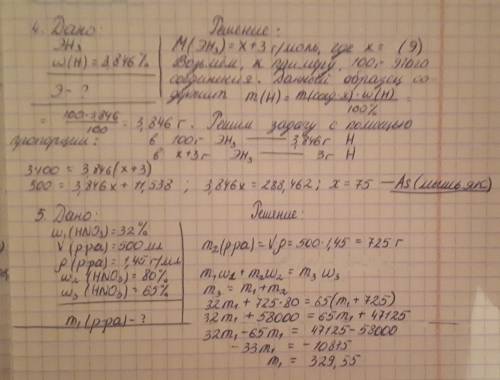 4. Дано: Решение:
ЭН₃ M(ЭН₃) = x+3 г/моль, где x = (Э)
ω(H) = 3,846% Возьмём, к примеру, 100г этого
соединения. Данный образец со
Э - ? держит m(H) = m(соед-я)·ω(H)/100% =
= 100·3,846/100 = 3,846 г. Решим задачу с помощью
пропорции: в 100г ЭН₃ — 3,846г H
в x+3г ЭН₃ — 3г H
3400 = 3,846(x+3)
300 = 3,846x + 11,538 ; 3,846x = 288,462 ; x = 75 — As (мышьяк)
5. Дано: Решение:
ω₁(HNO₃) = 32%
V(р-ра) = 500 мл m₂(р-ра) = V·ρ = 500·1,45 = 725 г
ρ(р-ра) = 1,45 г/мл
ω₂(HNO₃) = 80% m₁ω₁ + m₂ω₂ = m₃ω₃
ω₃(HNO₃) = 65% m₃ = m₁+m₂
32m₁ + 725·80 = 65(m₁+725)
m₁(р-ра) - ? 32m₁ + 58000 = 65m₁ + 47125
32m₁ - 65m₁ = 47125 - 58000
-33m₁ = -10875
m₁ = 329,55